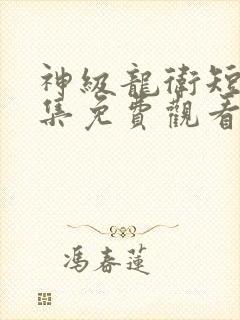 神級龍衛短
集免費觀看
馮春蓮